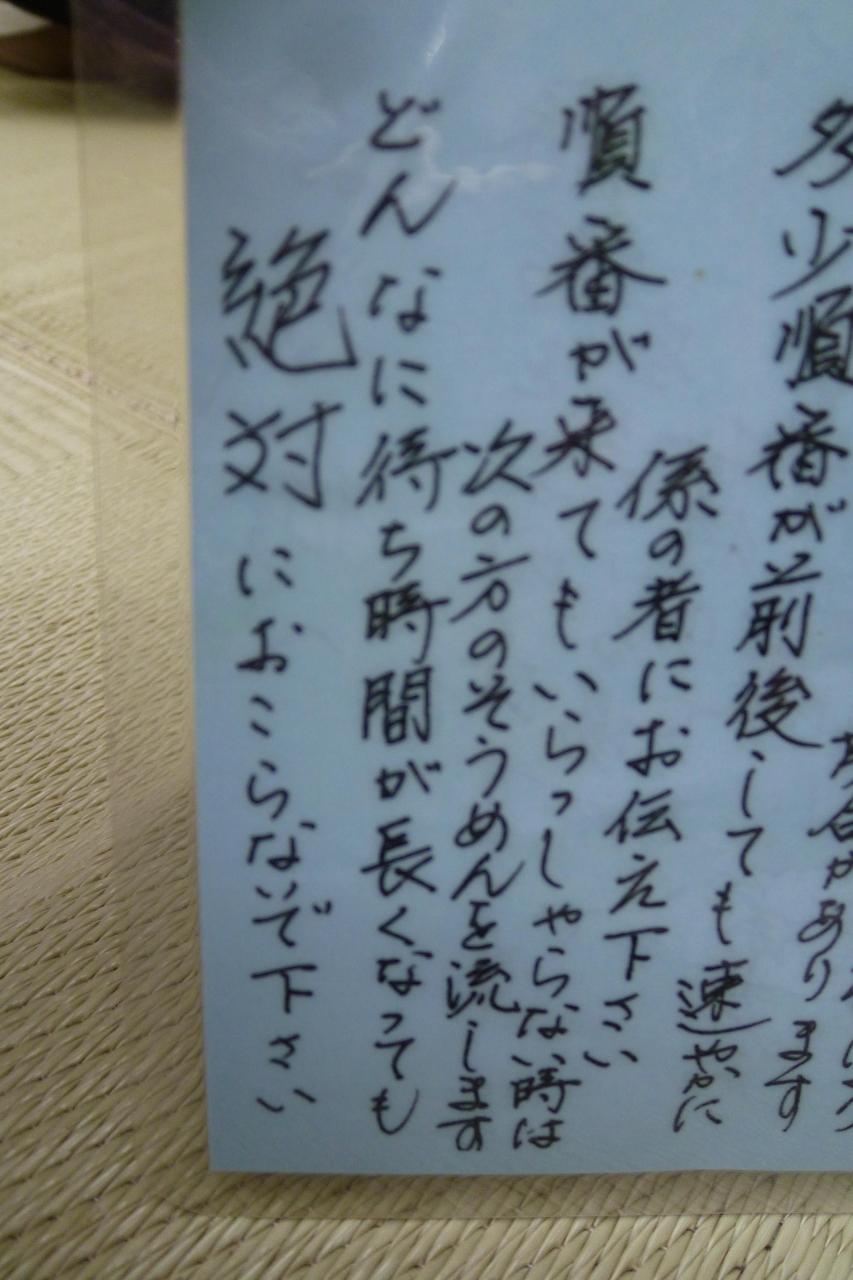 場合があります
多少順番が前後しても速やかに
係の者にお伝え下さい
順番が来てもいらっしゃらない時は
次の方のそうめんを流します
どんなに待ち時間が長くなっても
絶対におこらないで下さい